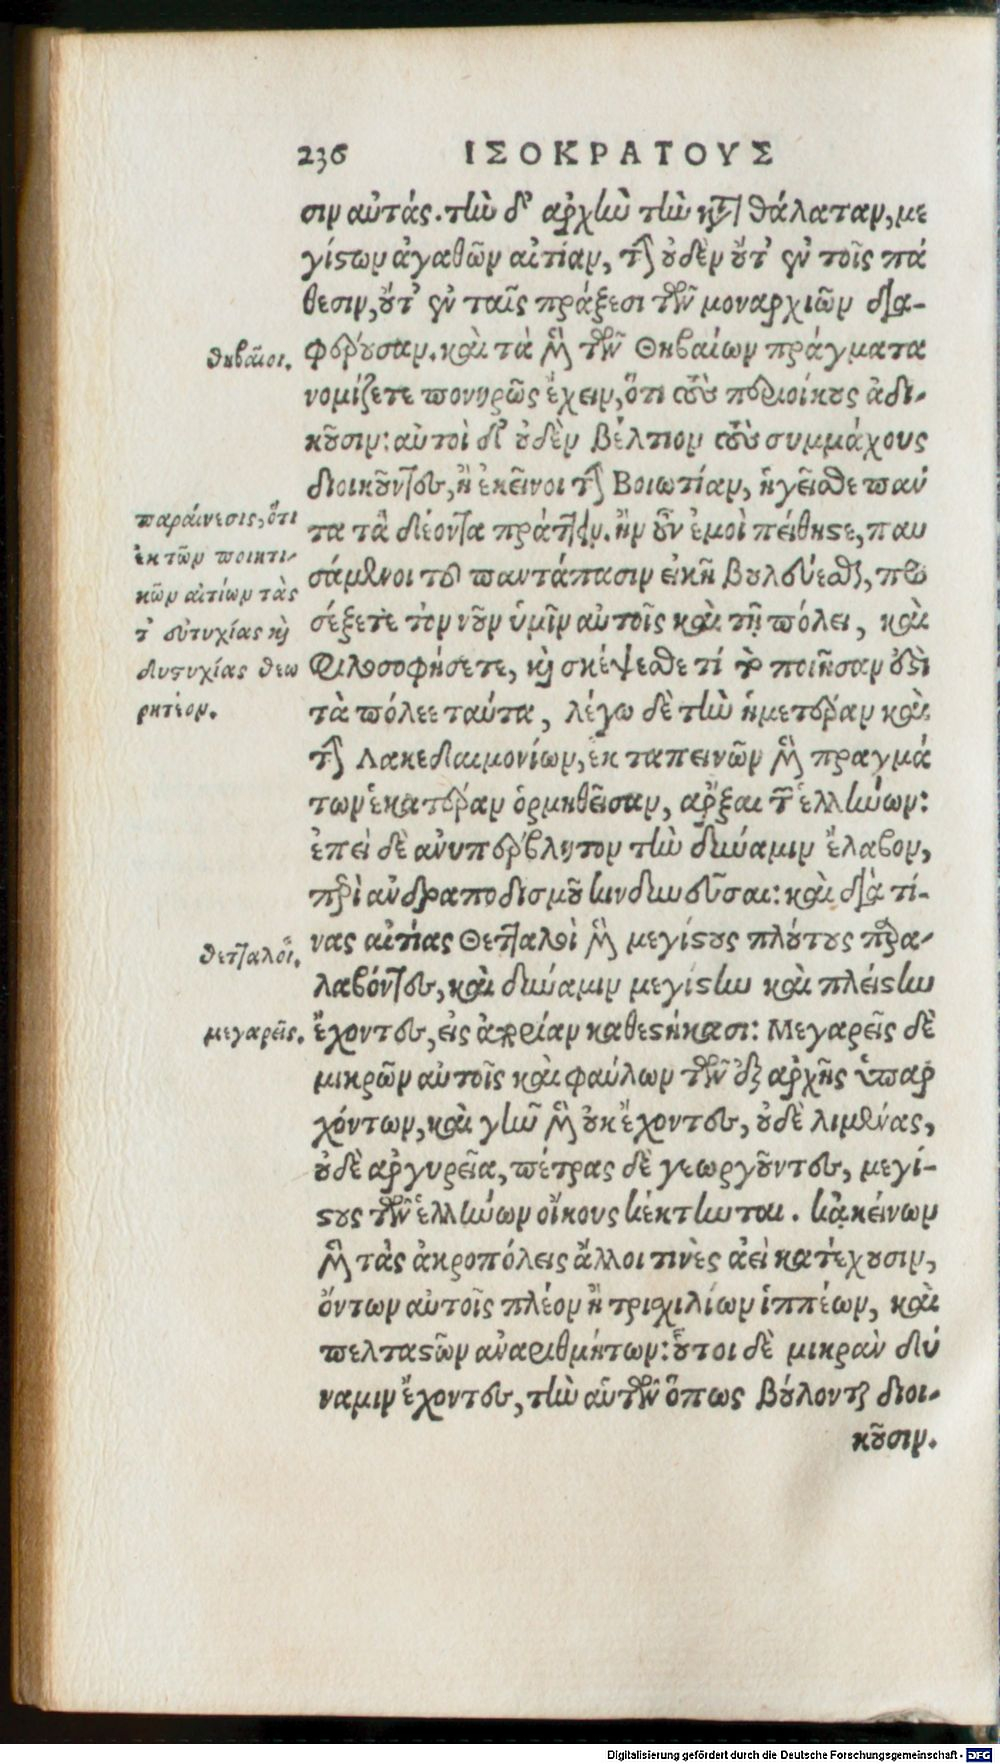 236 ΙΣΟΚΡΑΤΟΥΣ
σιν αὐτάς. τὴν δ' ἀρχὴν τὴν κατὰ θάλαταν, με
γίστων ἀγαθῶν αἰτίαν, τὴν οὐδὲν οὔτ' ἐν τοῖς πά
θεσιν, οὔτ' ἐν ταῖς πράξεσι τῶν μοναρχιῶν δια-
θηβαῖοι.
φέρουσαν. καὶ τὰ μὲν τῶν Θηβαίων πράγματα
νομίζετε πονηρῶς ἔχειν, ὅτι τοὺς περιοίκους ἀδι-
κοῦσιν: αὐτοὶ δ' οὐδὲν βέλτιον τοὺς συμμάχους
διοικοῦντες, ἢ ἐκεῖνοι τὴν Βοιωτίαν, ἡγεῖσθε παν
παραίνεσις, ὅτι
ἐκ τῶν ποιητι-
κῶν αἰτίων τὰς
τ' εὐτυχίας καὶ
δυστυχίας θεω
ρητέον.
τα τὰ δέοντα πράττειν. ἢν οὖν ἐμοὶ πείθησθε, παυ
σάμενοι τοῦ παντάπασιν εἰκῆ βουλεύεσθαι, προ
σέξετε τὸν νοῦν ὑμῖν αὐτοῖς καὶ τῇ πόλει, καὶ
φιλοσοφήσετε, καὶ σκέψεσθε τί τὸ ποιῆσαν ἐστὶ
τὰ πόλεε ταύτα, λέγω δὲ τὴν ἡμετέραν καὶ
τὴν Λακεδαιμονίων, ἐκ ταπεινῶν μὲν πραγμά
των ἑκατέραν ὁρμηθεῖσαν, ἄρξαι τῶν ἑλλήνων:
ἐπεὶ δὲ ἀνυπέρβλητον τὴν δύναμιν ἔλαβον,
περὶ ἀνδραποδισμοῦ κινδυνεῦσαι: καὶ διὰ τί-
θετταλοί.
νας αἰτίας Θετταλοὶ μὲν μεγίστους πλούτους παρα-
λαβόντες, καὶ δύναμιν μεγίστην καὶ πλείστην
μεγαρεῖς.
ἔχοντες, εἰς ἀπορίαν καθεστήκασι: Μεγαρεῖς δὲ
μικρῶν αὐτοῖς καὶ φαύλων τῶν ἐξ ἀρχῆς ὑπαρ
χόντων, καὶ γῆν μὲν οὐκ ἔχοντες, οὐδὲ λιμένας,
οὐδὲ ἀργυρεῖα, πέτρας δὲ γεωργοῦντες, μεγί-
στους τῶν ἑλλήνων οἴκους κέκτηνται. κἀκείνων
μὲν τὰς ἀκροπόλεις ἄλλοι τινὲς ἀεὶ κατέχουσιν,
ὄντων αὐτοῖς πλέον ἢ τρισχιλίων ἱππέων, καὶ
πελταστῶν ἀναριθμήτων: οὗτοι δὲ μικρὰν δύ
ναμιν ἔχοντες, τὴν αὑτῶν ὅπως βούλονται διοι-
κοῦσιν.
Digitalisierung gefördert durch die Deutsche Forschungsgemeinschaft - DFG